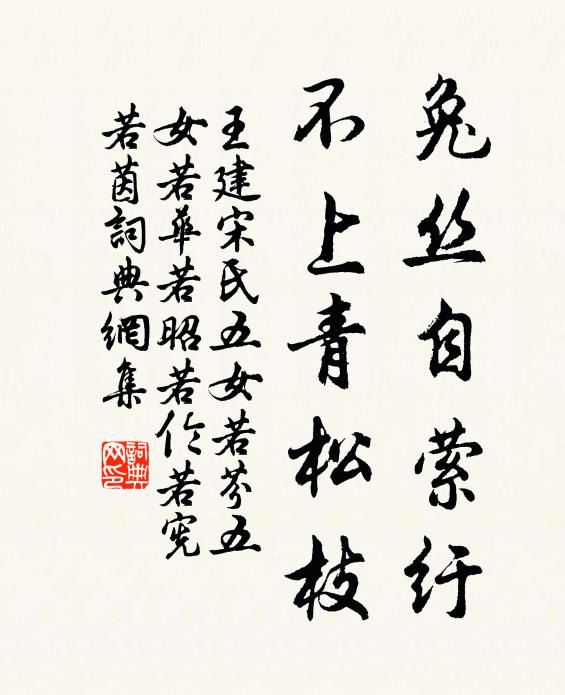 兔丝自萦纡
不上青松枝
王建宋氏五女若芬五
女若華若昭若伦若宪
若茵詞典網集
詞典网印